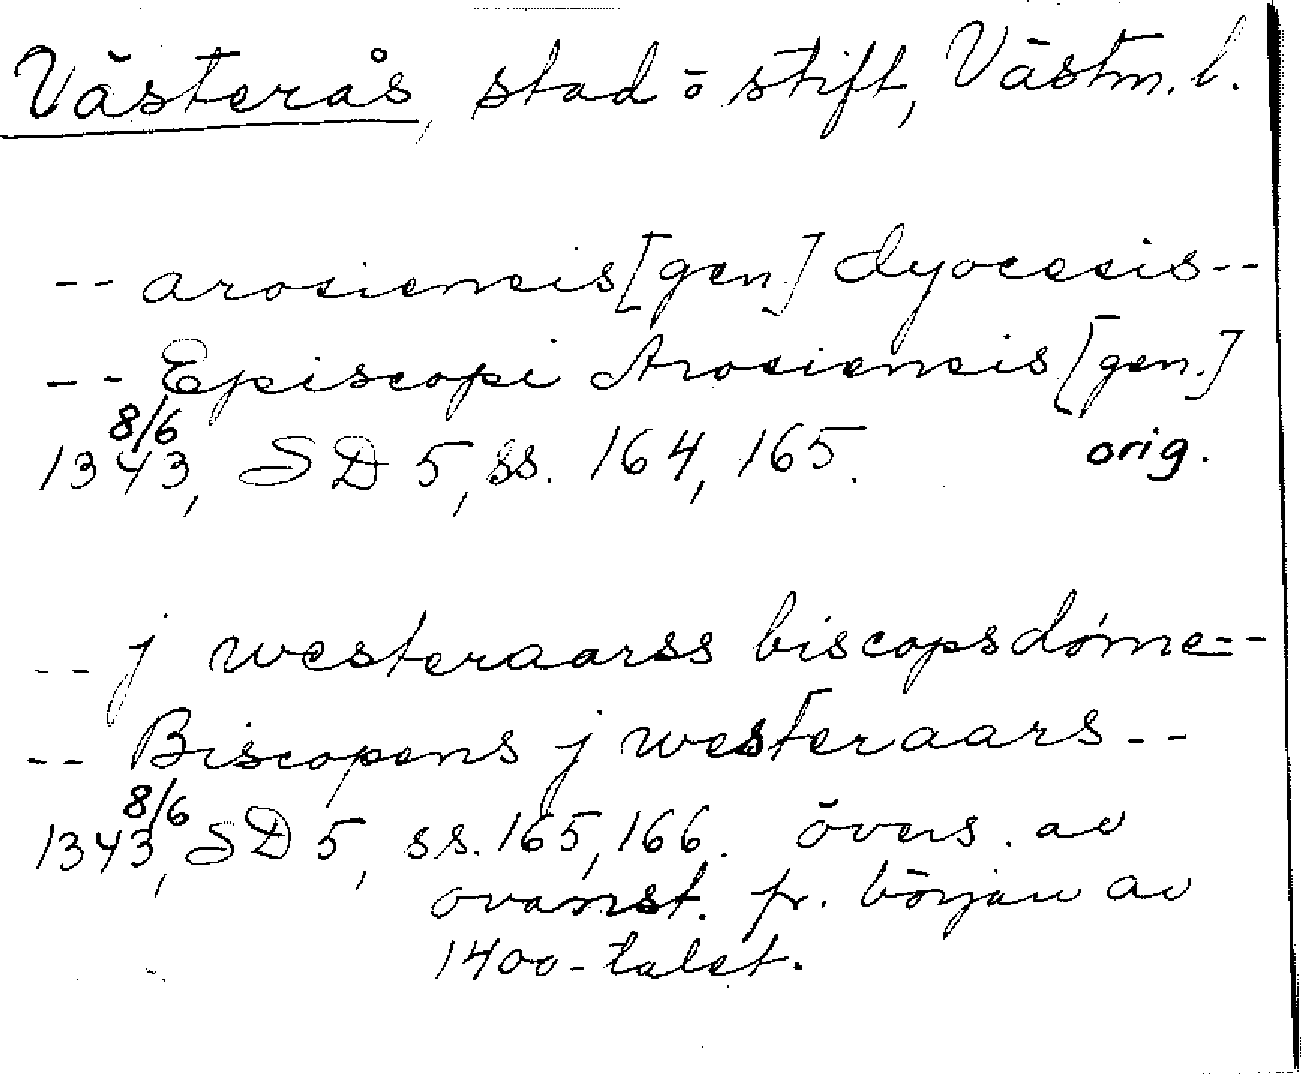 Västerås, stad ō stift, Västm. l.
-- arosiensis [gen.] dyocesis --
-- Episcopi Arosiensis [gen.]
1343 8/6, SD 5, ss. 164, 165. orig.
-- j westeraarss biscopsdøme --
-- Biscopens j westeraars --
1343 8/6, SD 5, ss. 165, 166. övers. av
ovanst. fr. början av
1400-talet.